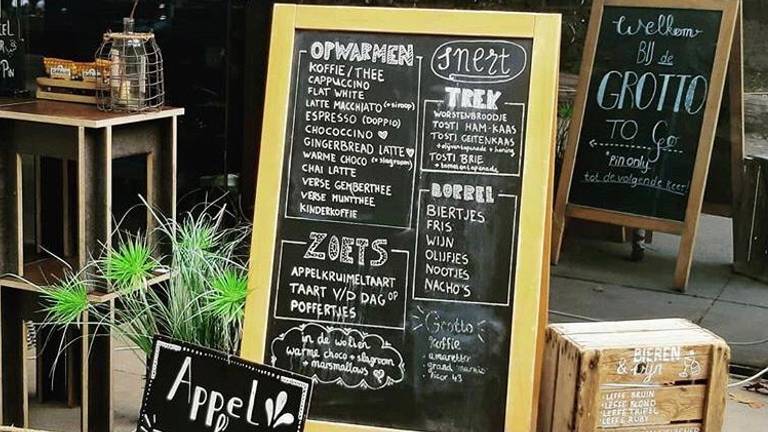 OPWARMEN
KOFFIE/THEE
CAPPUCCINO
FLAT WHITE
LATTE MACCHIATO (+siroop)
ESPRESSO (DOPPIO)
CHOCOCCINO
GINGERBREAD LATTE
WARME CHOCO (+slagroom)
CHAI LATTE
VERSE GEMBERTHEE
VERSE MUNTTHEE
KINDERKOFFIE
ZOETS
APPELKRUIMELTAART
TAART V/D DAG OP
POFFERTJES
in de wolken
warme choco + slagroom
+ marshmallows
Snert
TREK
WORSTENBROODJE
TOSTI HAM-KAAS
TOSTI GEITENKAAS
+ olijventapenade + honing
TOSTI BRIE
BORREL
BIERTJES
FRIS
WIJN
OLIJFJES
NOOTJES
NACHO'S
Grotto
Koffie
amaretto
grand marnier
licor 43
Welkom
BIJ de
GROTTO
TO Go
*pin only*
tot de volgende keer!
Appel
BIEREN
& wijn
LEFFE BRUIN
LEFFE BLOND
LEFFE TRIPEL
LEFFE RUBY
PIN